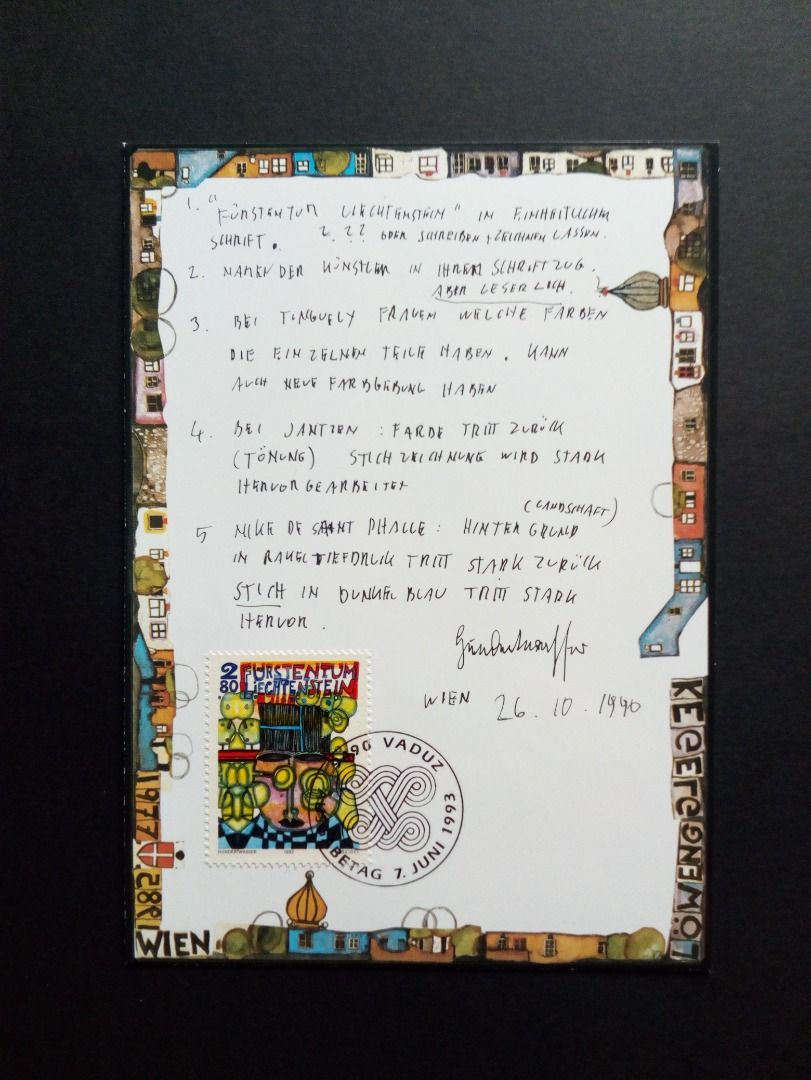 1. "FÜRSTENTUM LIECHTENSTEIN" IN EINHEITLICHER
SCHRIFT. 2. ?? ODER SCHREIBEN + ZEICHNEN LASSEN.
2. NAMEN DER KÜNSTLER IN IHREM SCHRIFTZUG.
ABER LESERLICH.
3. BEI TINGUELY FRAGEN WELCHE FARBEN
DIE EINZELNEN TEILE HABEN. KANN
AUCH NEUE FARBGEBUNG HABEN
4. BEI JANTZEN : FARBE TRITT ZURÜCK
(TÖNUNG) STICHZEICHNUNG WIRD STARK
HERVORGEARBEITET
(LANDSCHAFT)
5 NIKE DE SAINT PHALLE : HINTERGRUND
IN RAKELTIEFDRUK TRITT STARK ZURÜCK
STICH IN DUNKELBLAU TRITT STARK
HERVOR.
Hundertwasser
WIEN 26.10.1990
2
80
FÜRSTENTUM
LIECHTENSTEIN
HUNDERTWASSER 1993
90 VADUZ
BETAG 7. JUNI 1993
1977
1982
WIEN